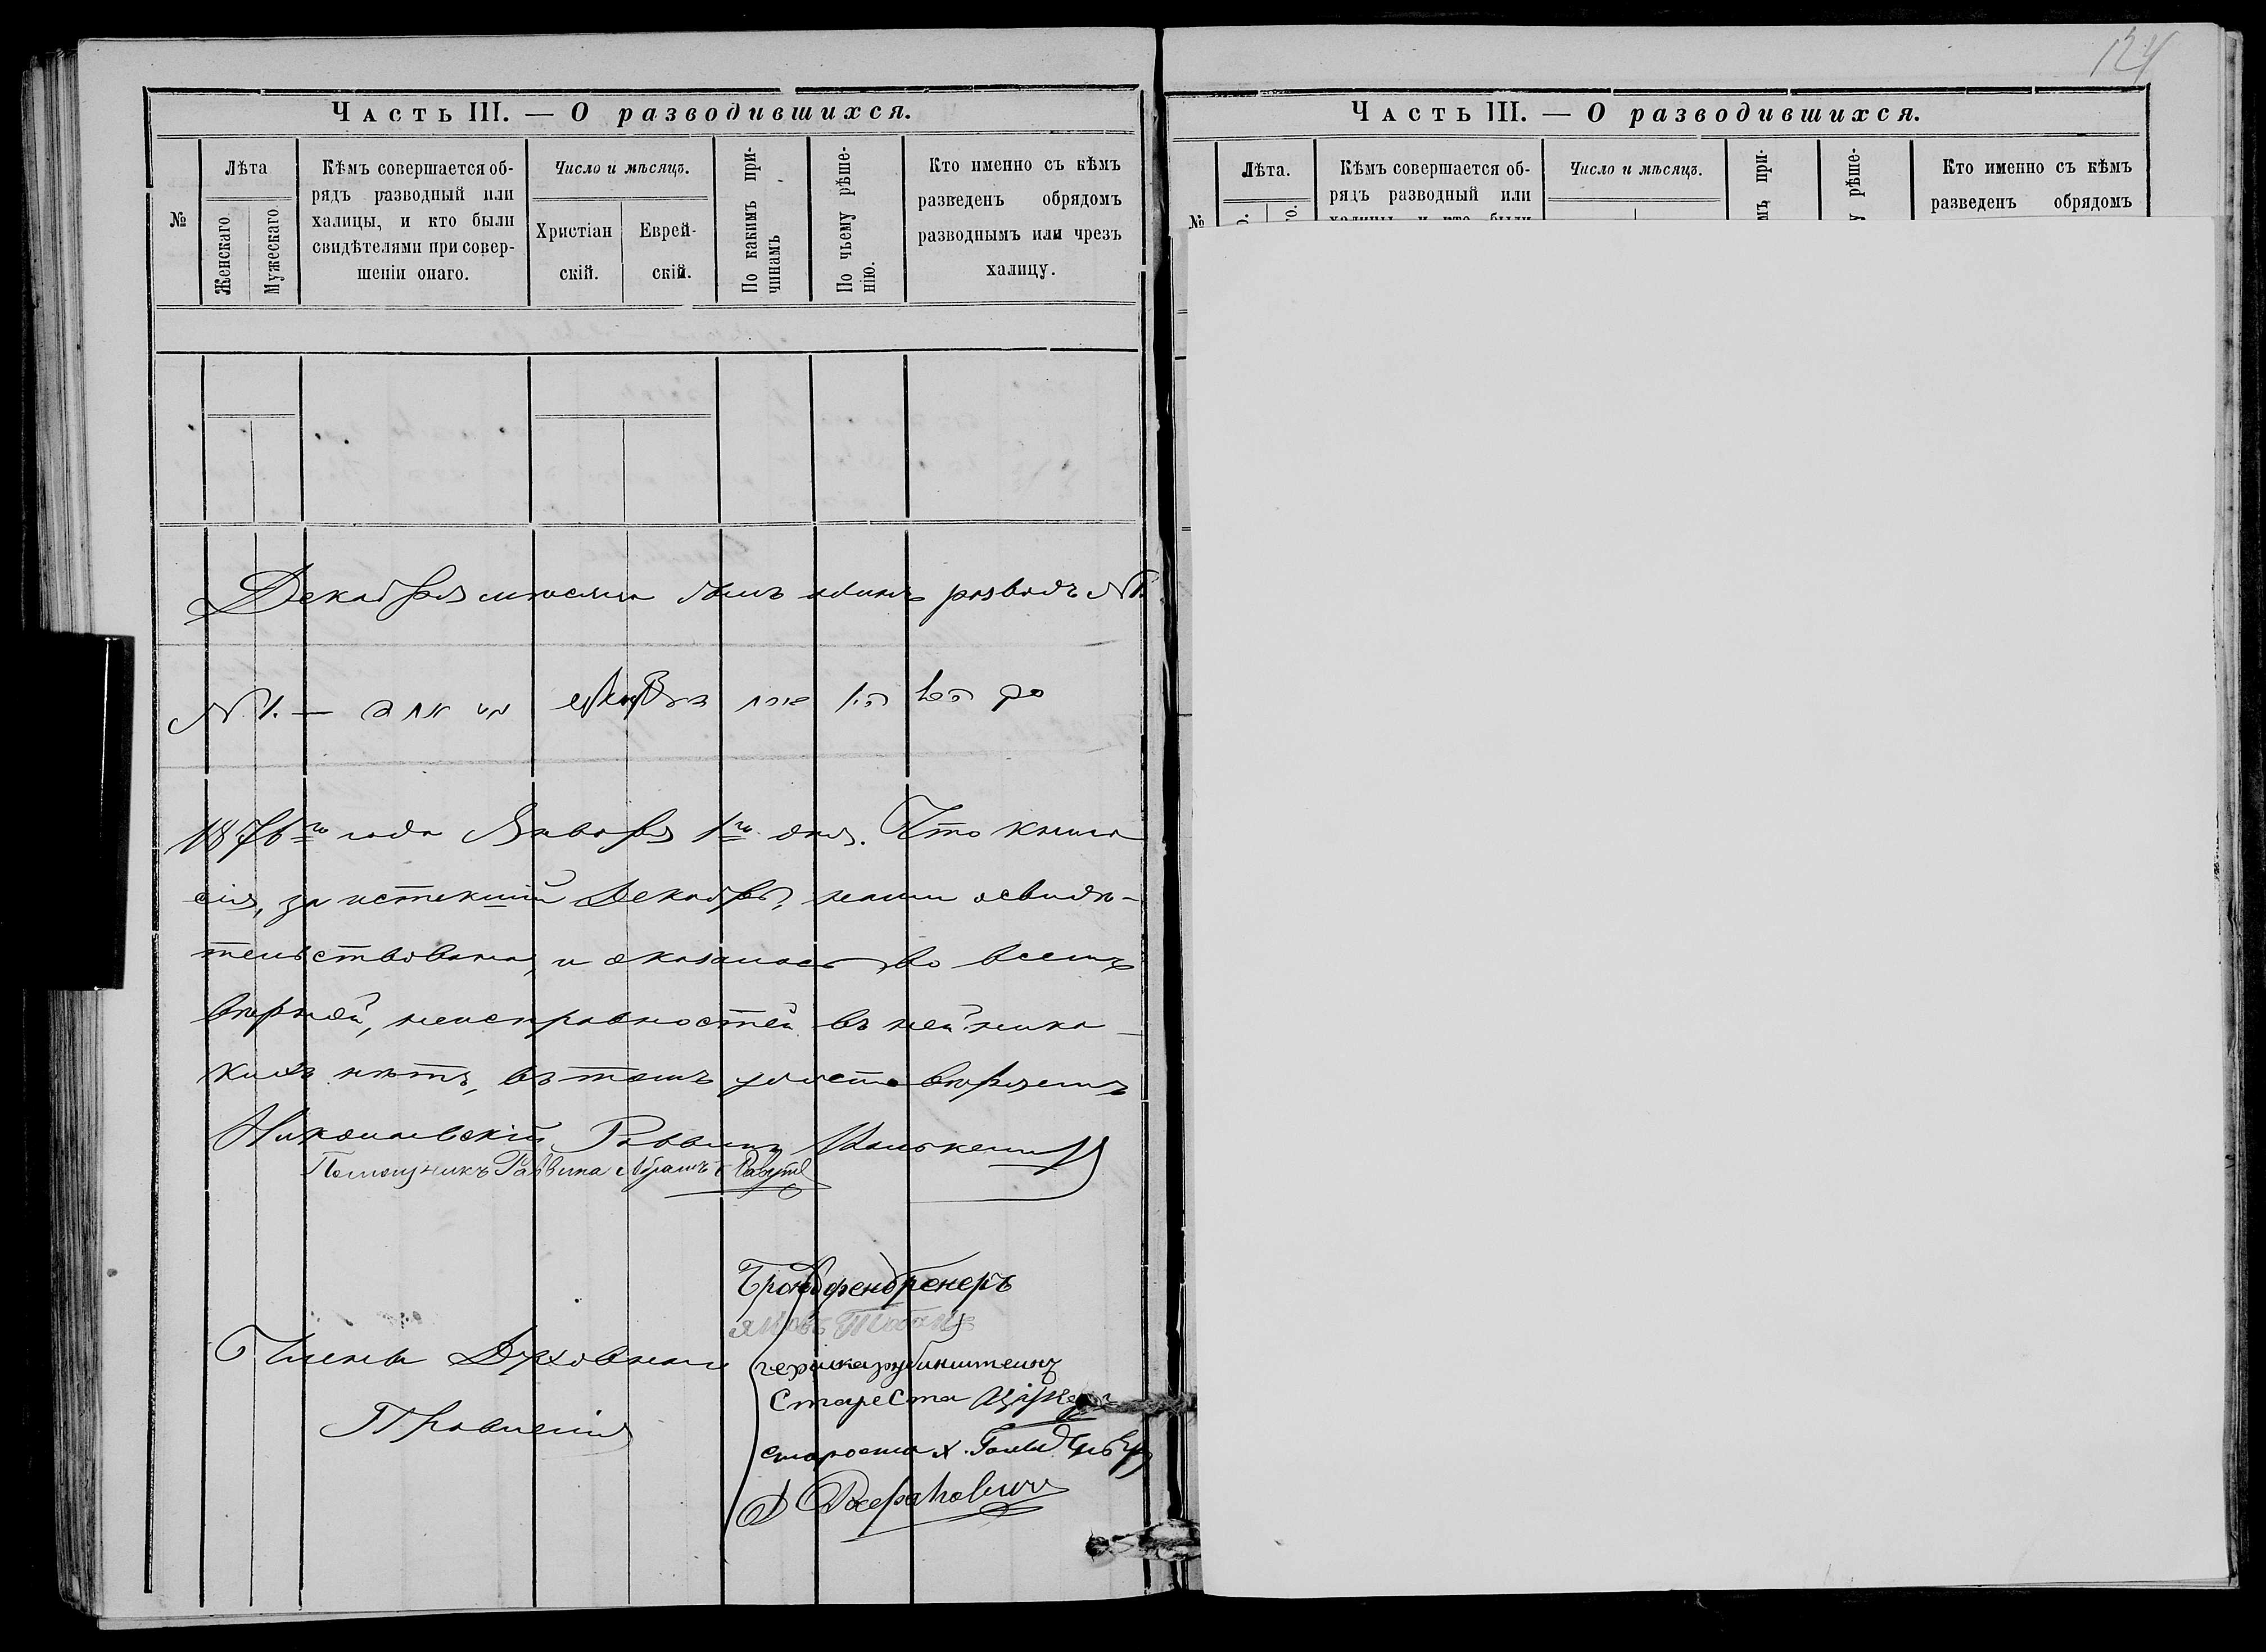 124
Часть III. — О разводившихся.
№
Лѣта
Женскаго
Мужескаго
Кѣмъ совершается об-
рядъ разводный или
халицы, и кто были
свидѣтелями при совер-
шеніи онаго.
Число и мѣсяцъ.
Христіан
скій.
Еврей-
скій.
По какимъ при-
чинамъ
По чьему рѣше-
нію.
Кто именно съ кѣмъ
разведенъ обрядомъ
разводнымъ или чрезъ
халицу.
Декабря мѣсяца былъ одинъ разводъ №1.
№ 1. —
1876го года Января 1го дня. Что книга
сія, за истекшій Декабрь, нами освидѣ-
тельствована, и оказалась во всемъ
вѣрной, неисправностей въ ней ника-
кихъ нѣтъ, въ томъ удостовѣряемъ
Николаевскій Раввинъ
Помощникъ Раввина Абрамъ
Члены Духовнаго
Правленія
Бронфенбренеръ
рубинштеинъ
Староста
староста Х.
Часть III. — О разводившихся.
№
Лѣта.
Кѣмъ совершается об-
рядъ разводный или
халицы, и кто были
Число и мѣсяцъ.
мъ при-
у рѣше-
Кто именно съ кѣмъ
разведенъ обрядомъ